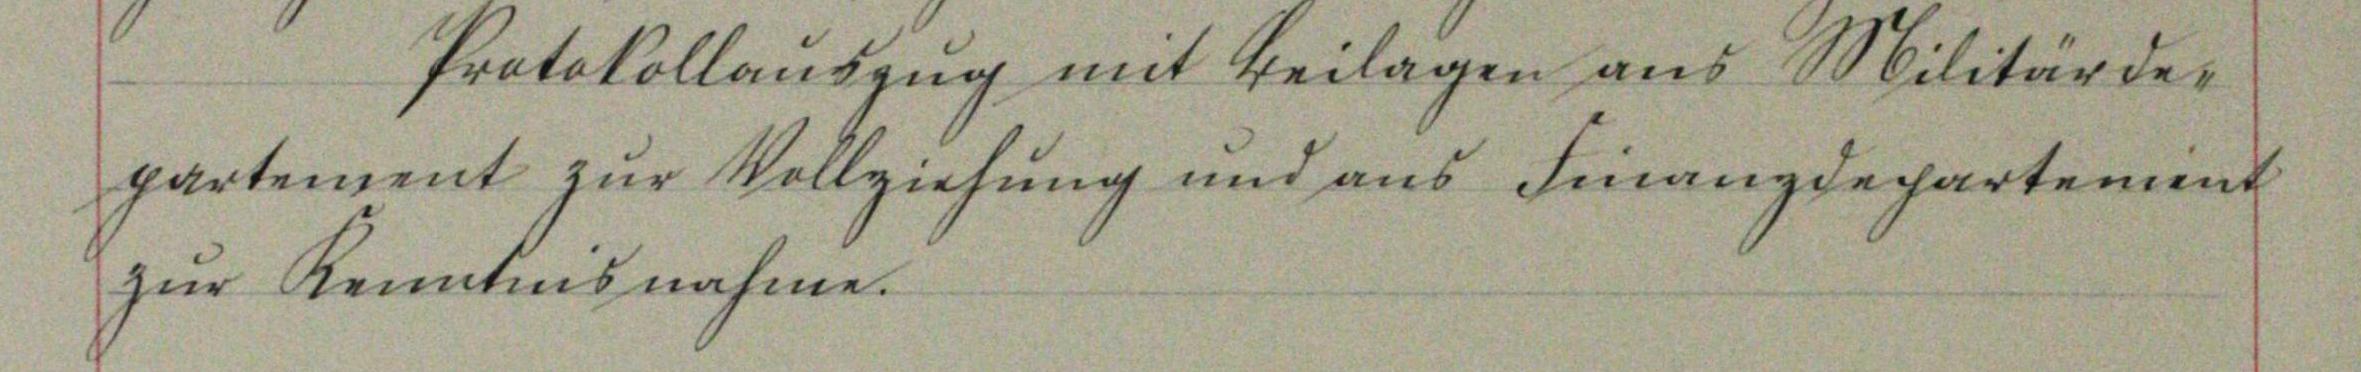 Protokollauszug mit Beilagen ans Militärde-
partement zur Vollziehung und ans Finanzdepartement
zur Kenntnisnahme.